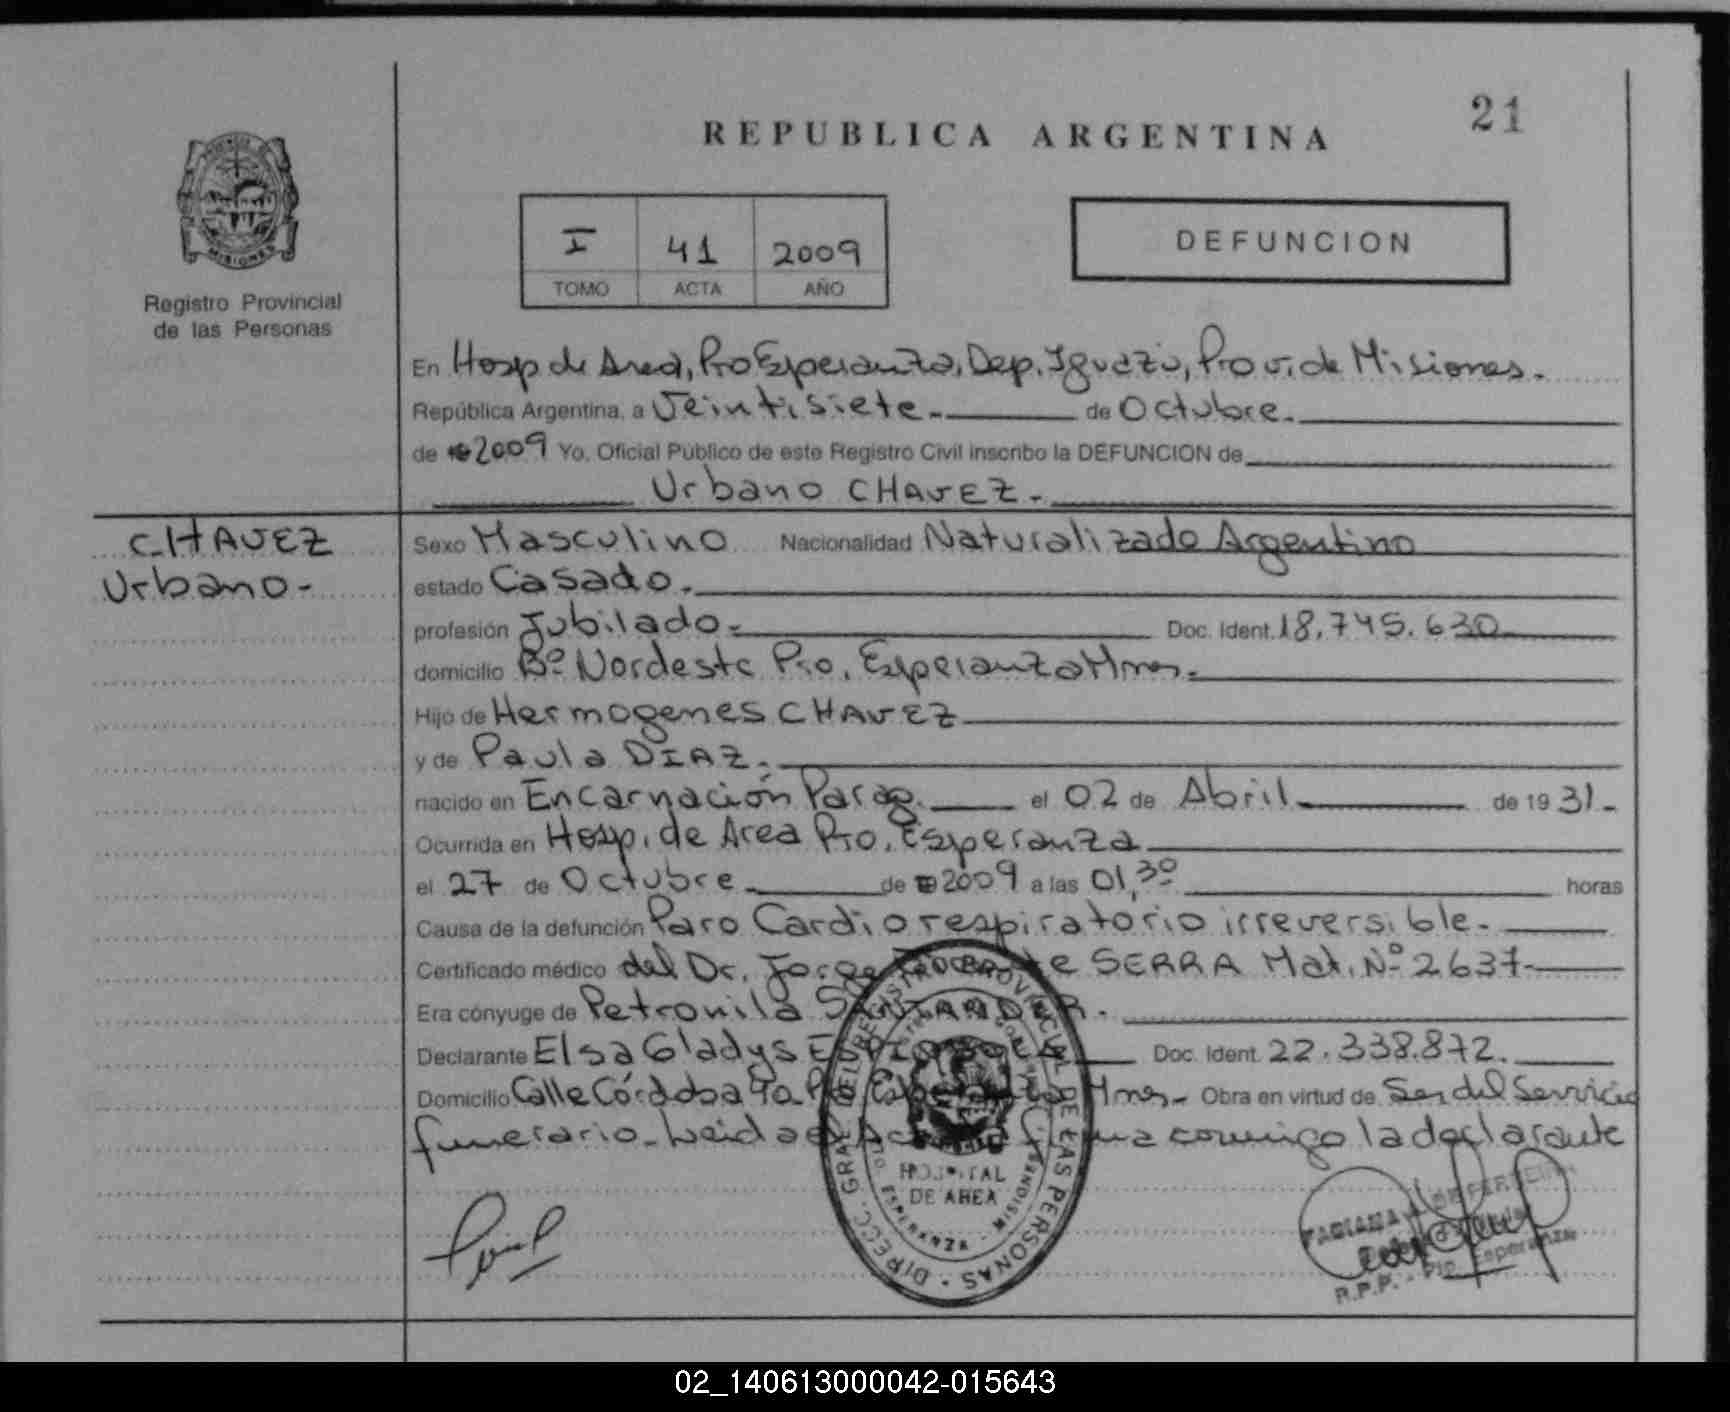 21
REPUBLICA ARGENTINA
MISIONES
Registro Provincial
de las Personas
I 41 2009
TOMO ACTA AÑO
DEFUNCION
En Hosp de Area, Pto Esperanza, Dep. Iguazú, Prov. de Misiones.
República Argentina, a Veintisiete.- de Octubre.
de 2009 Yo, Oficial Público de este Registro Civil inscribo la DEFUNCION de
Urbano CHAVEZ.-
CHAVEZ
Urbano-
Sexo Masculino Nacionalidad Naturalizado Argentino
estado Casado.
profesión Jubilado.- Doc. Ident. 18.745.630
domicilio Bº Nordeste Pto. Esperanza Mnes.
Hijo de Hermogenes CHAVEZ
y de Paula DIAZ.
nacido en Encarnación Parag. el 02 de Abril de 19 31-
Ocurrida en Hosp. de Area Pto. Esperanza
el 27 de Octubre de 2009 a las 01,30 horas
Causa de la defunción Paro Cardiorespiratorio irreversible.-
Certificado médico del Dr. Jorge SERRA Mat. Nº 2637-
Era cónyuge de Petronila SANTANDER.
Declarante Elsa Gladys Doc. Ident. 22.338.872.
Domicilio Calle Córdoba Pto Esperanza Mnes- Obra en virtud de Ser del Servicio
funerario- Leida el Acta firma conmigo la declarante
DIRECC. GRAL. DEL REGISTRO PROVINCIAL DE LAS PERSONAS
HOSPITAL
DE AREA
ESPERANZA - MISIONES
FABIANA
R.P.P. - Pto. Esperanza
02_140613000042-015643